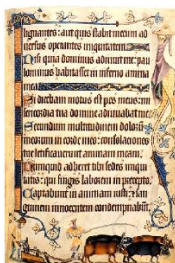 lignantes: aut quis stabit mecum ad
versus operantes iniquitatem.
Nisi quia dominus adiuvit me: pau
lominus habitasset in inferno anima
mea.
Si dicebam motus est pes meus: mi
sericordia tua domine adiuvabat me.
Secundum multitudinem dolorum
meorum in corde meo: consolationes
tue letificaverunt animam meam.
Numquid adheret tibi sedes iniqui
tatis: qui fingis laborem in precepto.
Captabunt in animam iusti: et san
guinem innocentem condempnabunt.